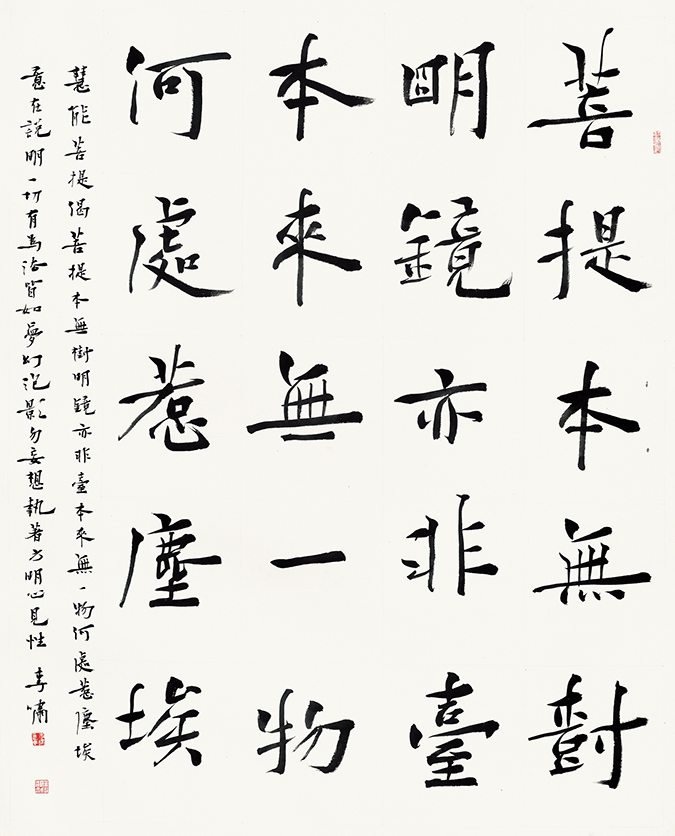 菩提本無樹
明鏡亦非臺
本來無一物
何處惹塵埃
慧能菩提偈菩提本無樹明鏡亦非臺本來無一物何處惹塵埃
意在說明一切有為法皆如夢幻泡影勿妄想執著方明心見性 李嘯